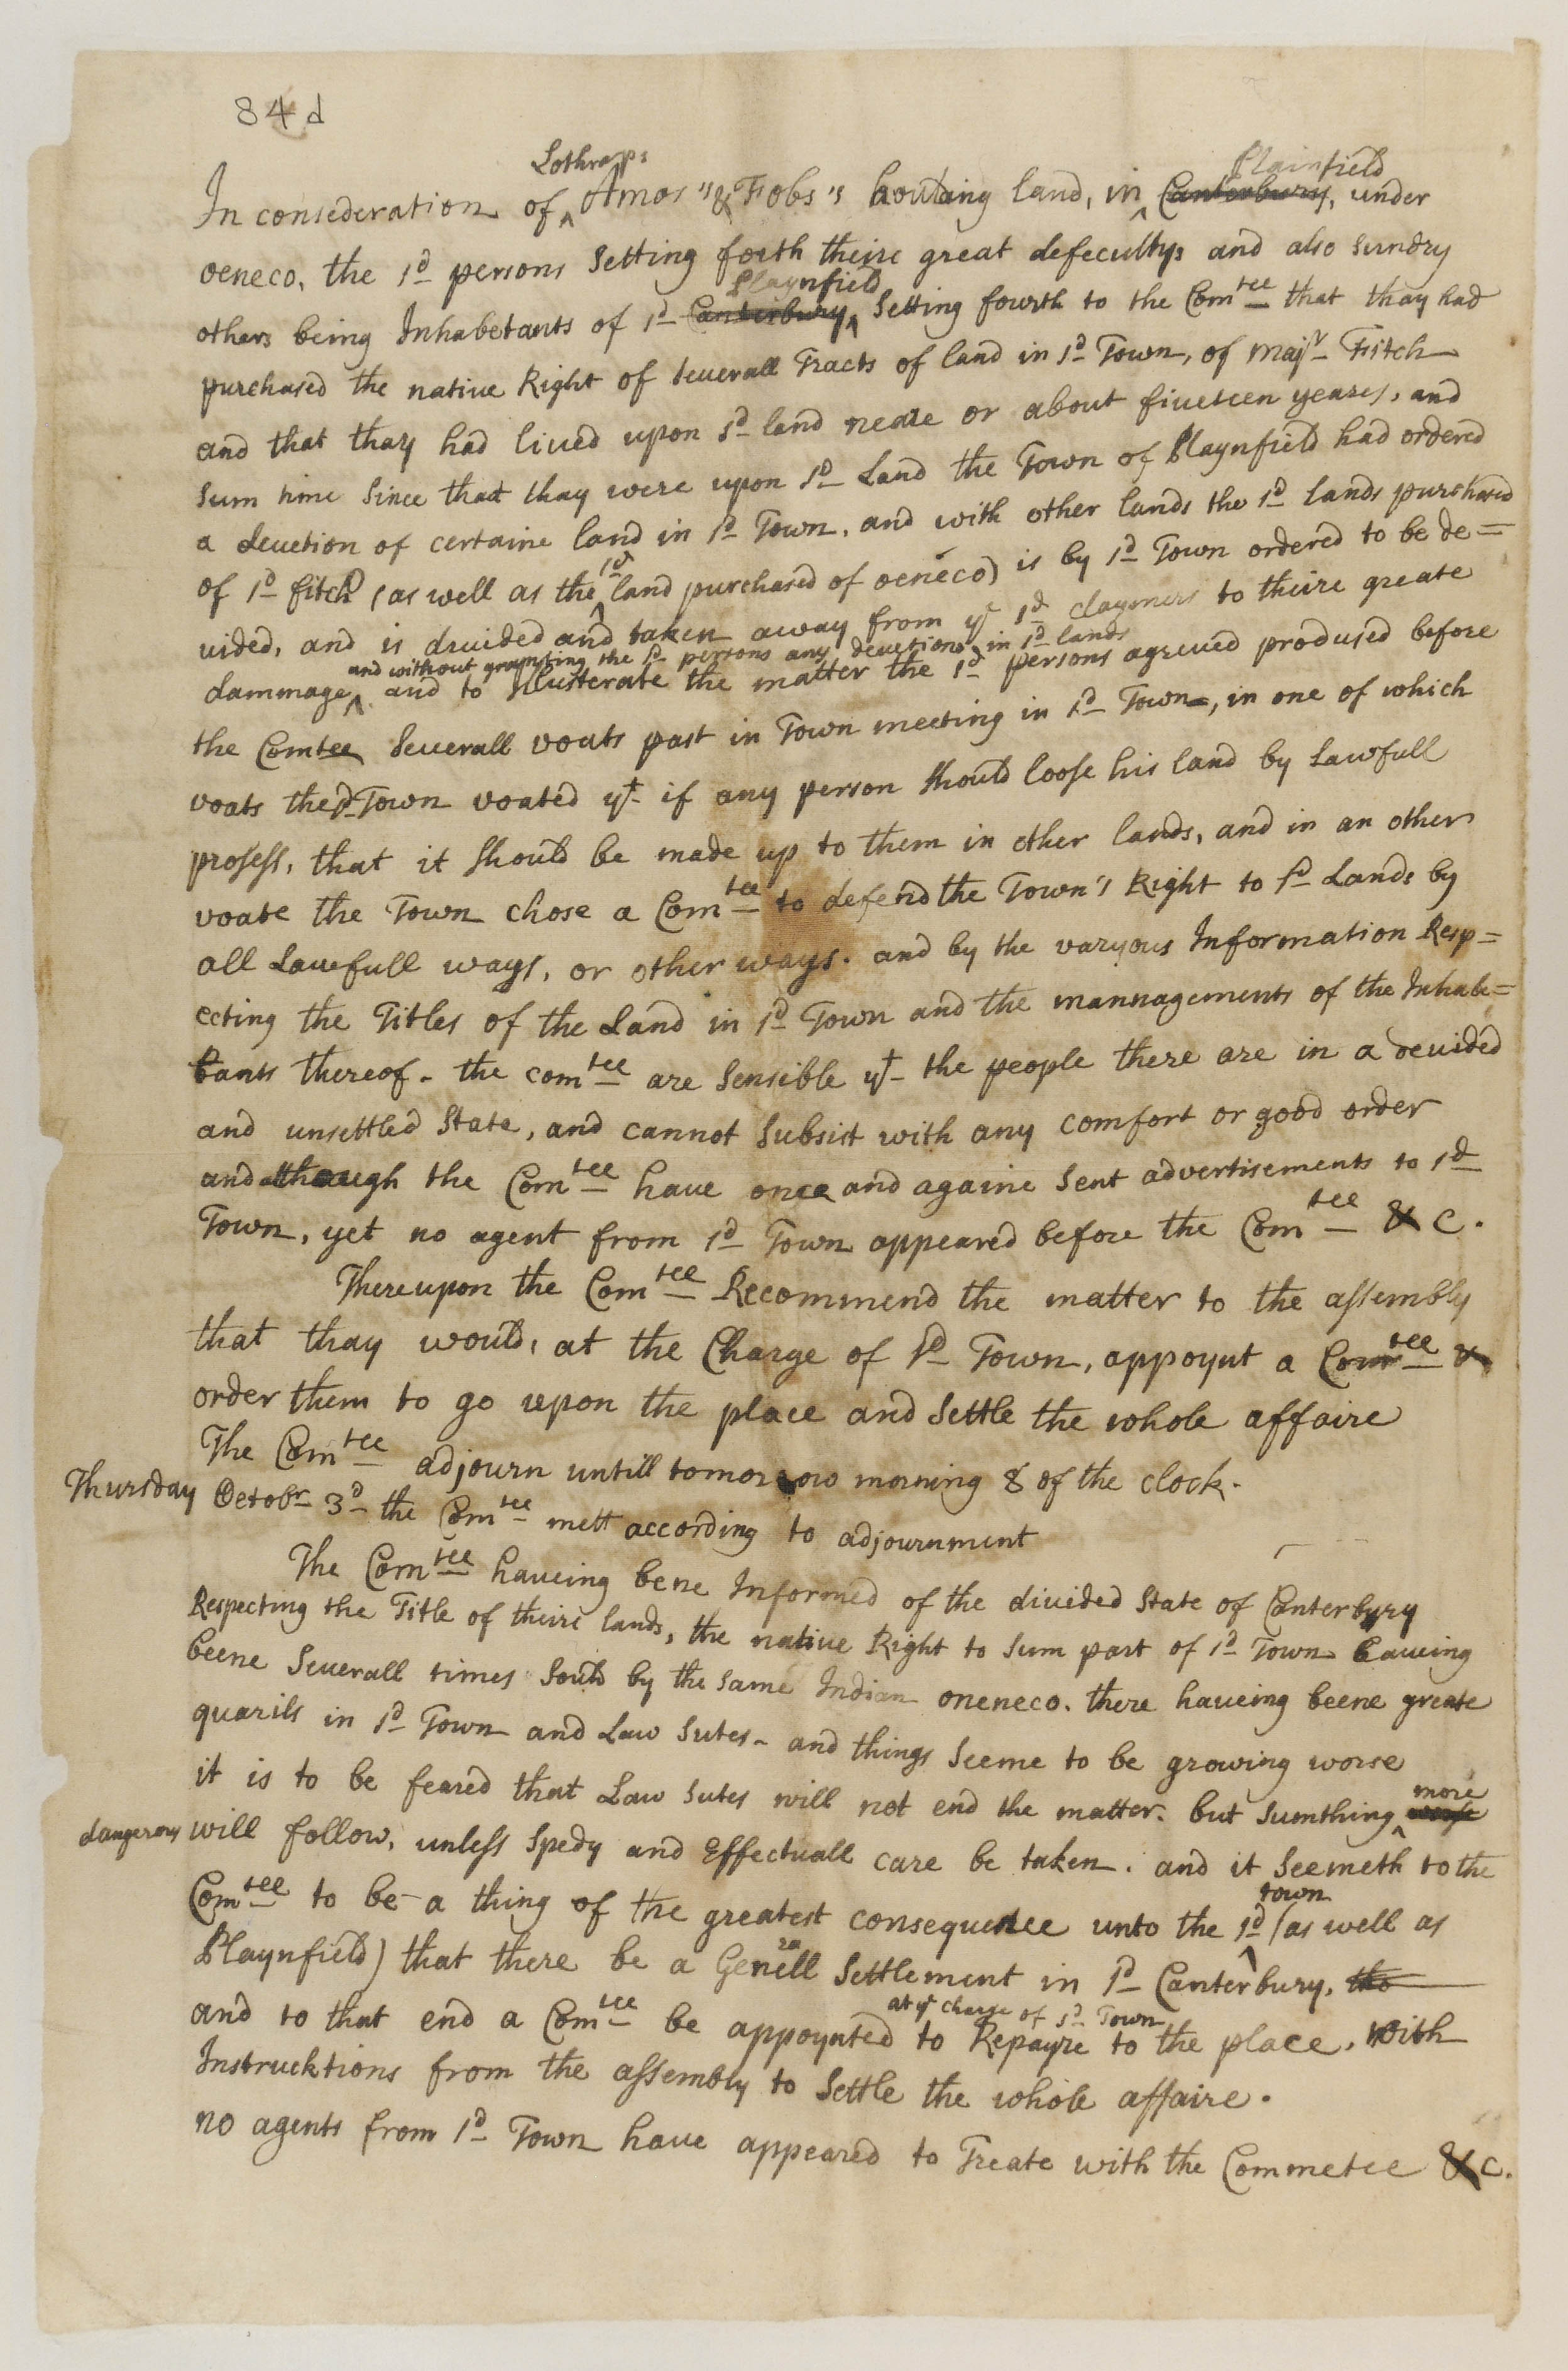 84 d
Lothrops Plainfield
In consederation of ^ Amos's & Fobs's houlding land, in ^ Canterbury, under
oeneco, the sd persons Setting forth theire great defecultys and also sundry
Playnfield
others being Inhabetants of sd Canterbury ^ Setting fourth to the Comtee that thay had
purchased the native Right of severall Tracts of land in sd Town, of majr Fitch
and that thay had lived upon sd land neare or about fiueteen yeares, and
sum time since that thay were upon sd Land the Town of Playnfield had ordered
a deuetion of certaine land in sd Town, and with other lands the sd lands purchased
sd
of sd fitch (as well as the ^ land purchased of oeneco) is by sd Town ordered to be de=
uided, and is deuided and taken away from ye sd claymers to theire greate
and without grameting the sd persons any deuetions in sd lands
dammage ^ and to Illusterate the matter the sd persons agreued prodused before
the Comtee Seuerall voats past in Town meeting in sd Town, in one of which
voats the sd Town voated yt if any person should loose his land by Lawfull
prosess, that it should be made up to them in other lands, and in an other
voate the Town chose a Comtee to defend the Town's Right to sd Lands by
all Lauefull ways, or other ways. and by the varyous Information Resp=
ecting the Titles of the Land in sd Town and the mannagements of the Inhabe=
tants thereof - the comtee are Sensible yt the people there are in a deuided
and unsettled State, and cannot Subsist with any comfort or good order
and although the Comtee have once and againe Sent advertisements to sd
Town, yet no agent from sd Town appeared before the Comtee & c.
Thereupon the Comtee Recommend the matter to the assembly
that thay would, at the Charge of sd Town, appoynt a Comtee &
order them to go upon the place and Settle the whole affaire
The Comtee adjourn untill tomorrow morning 8 of the clock.
Thursday Octobr 3d the Comtee mett according to adjournment
The Comtee haueing bene Informed of the divided State of Canterbury
Respecting the Title of theire lands, the native Right to sum part of sd Town haueing
beene Seuerall times Sould by the same Indian oneneco. there haueing beene greate
quarils in sd Town and Law Sutes - and things Seeme to be growing worse
it is to be feared that Law Sutes will not end the matter. but sumthing ^ worse
more
dangerous will follow, unless Spedy and Effectuall care be taken. and it Seemeth to the
town
Comtee to be a thing of the greatest consequence unto the sd ^ (as well as
Playnfield) that there be a Generall Settlement in sd Canterbury, the
at ye charge of sd Town
and to that end a Comtee be appoynted to Repayre to the place, with
Instrucktions from the assembly to Settle the whole affaire.
no agents from sd Town have appeared to Treate with the Commetee & c.